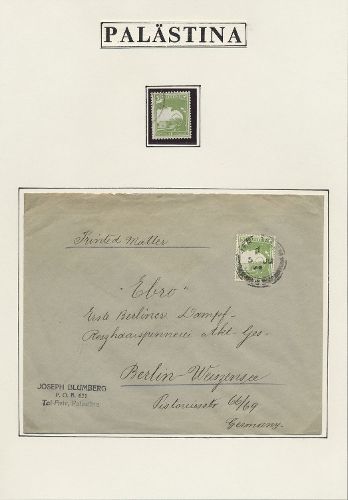 PALÄSTINA
Printed Matter
"Ebro"
Erste Berliner Dampf-
Rosshaarspinnerei Akt-Ges-
Berlin-Weissensee
Pistoriusstr 66/69
Germany
JOSEPH BLUMBERG
P. O. B. 631
Tel-Aviv, Palästina